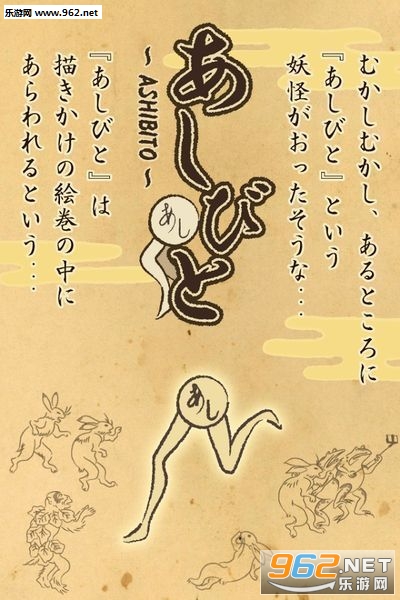 乐游网
www.962.net
むかしむかし、あるところに
『あしびと』という
妖怪がおったそうな・・・
あしびと
～ASHIBITO～
あし
『あしびと』は
描きかけの絵巻の中に
あらわれるという・・・
あし
962.NET
乐游网